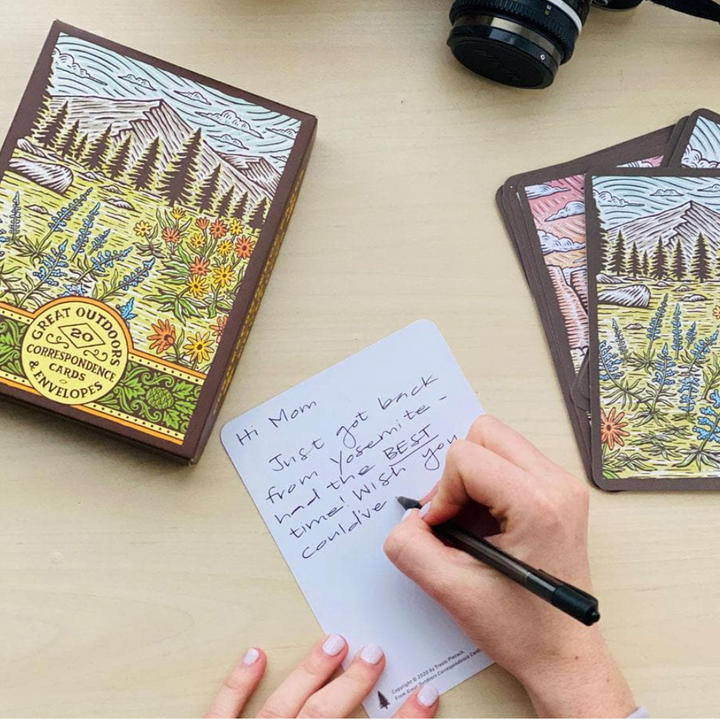 GREAT OUTDOORS
20
CORRESPONDENCE
CARDS
& ENVELOPES
Hi Mom
Just got back
from Yosemite -
had the BEST
time! Wish you
could've
Copyright © 2020 by Travis Pietsch.
From Great Outdoors Correspondence Cards